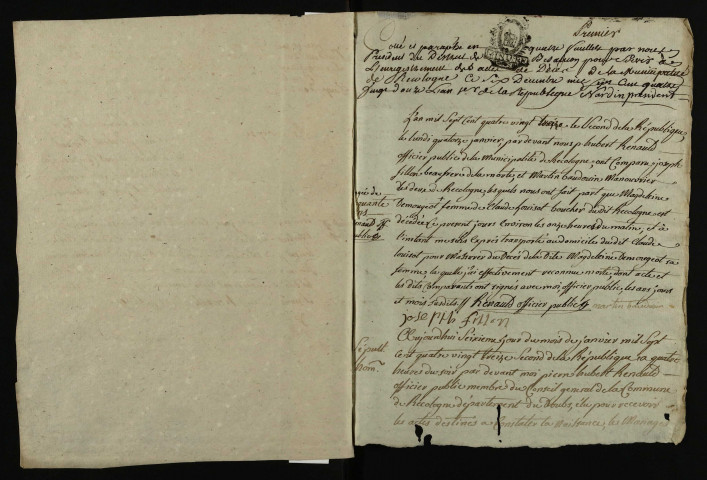 Premier
Coté et paraphé en quatre feuillets par nous
President du District de Besançon pour servir à
L'enregistrement des actes de Décès de la Municipalité
de Recologne ce Six Decembre mil sept Cent quatre
vingt douze L'an 1er de la Republique Nardin president
L'an mil Sept Cent quatre vingt treize le Second de la République
le lundi quatorze janvier par devant nous p. hubert Renauld
officier public de la Municipalité de Recologne, ont Comparu joseph
fillon beaufrere de la morte et Martin baudouin Manouvrier
des deux de Recologne, lesquels nous ont fait part que Magdeleine
Demougeot femme de Claude Louisot boucher dudit Recologne est
décédée le present jour Environ les onze heures du matin, et à
l'instant me suis Exprès transporté au domicile dudit Claude
Louisot pour M'assurer du Décès de la dite Magdeleine Demougeot sa
femme, laquelle j'ai effectivement reconnue morte, dont acte et
les dits Comparants ont signés avec moi officier public, les an, jour
et mois susdits Renauld officier public
joseph fillon
Aujourdhui Seixieme jour du mois de janvier mil Sept
Cent quatre vingt treize Second de la République, a quatre
heures du soir par devant moi pierre hubert Renauld
officier public membre du Conseil general de la Commune
de Recologne département du Doubs, élu pour recevoir
les actes destinés a Constater les Naissances, les Mariages